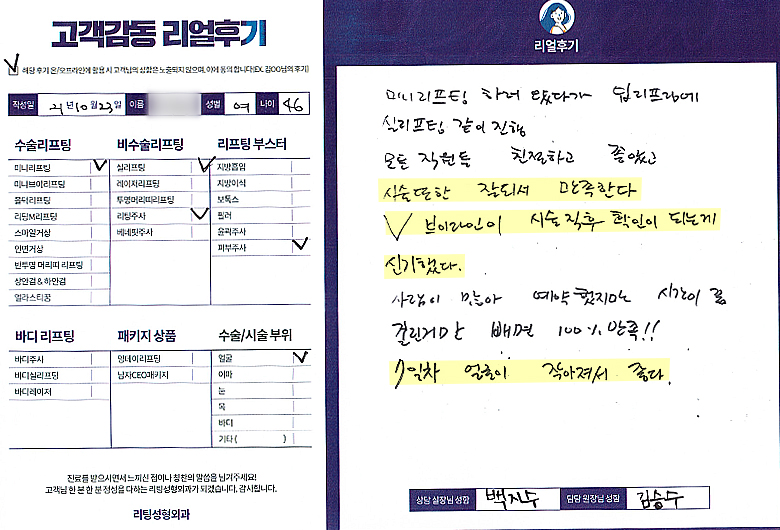 고객감동 리얼후기
해당 후기 온/오프라인에 활용 시 고객님의 성함은 노출되지 않으며, 이에 동의 합니다(EX. 김OO님의 후기)
작성일 21년 10월 23일 이름 성별 여 나이 46
수술리프팅
미니리프팅
미니브이리프팅
울더리프팅
리딩M리프팅
스마일거상
안면거상
반투명 머리띠 리프팅
상안검 & 하안검
엘라스티꿈
비수술리프팅
실리프팅
레이저리프팅
투명머리띠리프팅
리팅주사
베네핏주사
리프팅 부스터
지방흡입
지방이식
보톡스
필러
윤곽주사
피부주사
바디 리프팅
바디주사
바디실리프팅
바디레이저
패키지 상품
잉태이리프팅
남자CEO패키지
수술/시술 부위
얼굴
이마
눈
목
바디
기타 ( )
진료를 받으시면서 느끼신 점이나 칭찬의 말씀을 남겨주세요!
고객님 한 분 한 분 정성을 다하는 리팅성형외과가 되겠습니다. 감사합니다.
리팅성형외과
리얼후기
미니리프팅 하러 왔다가 딥리프팅에
실리프팅 같이 진행
모든 직원들 친절하고 좋았고
시술또한 잘되서 만족한다
V 브이라인이 시술직후 확인이 되는게
신기했다.
사람이 많아 예약했지만 시간이 좀
걸린거만 빼면 100% 만족!!
7일차 얼굴이 작아져서 좋다.
상담 실장님 성함 백지수 담당 원장님 성함 김승수